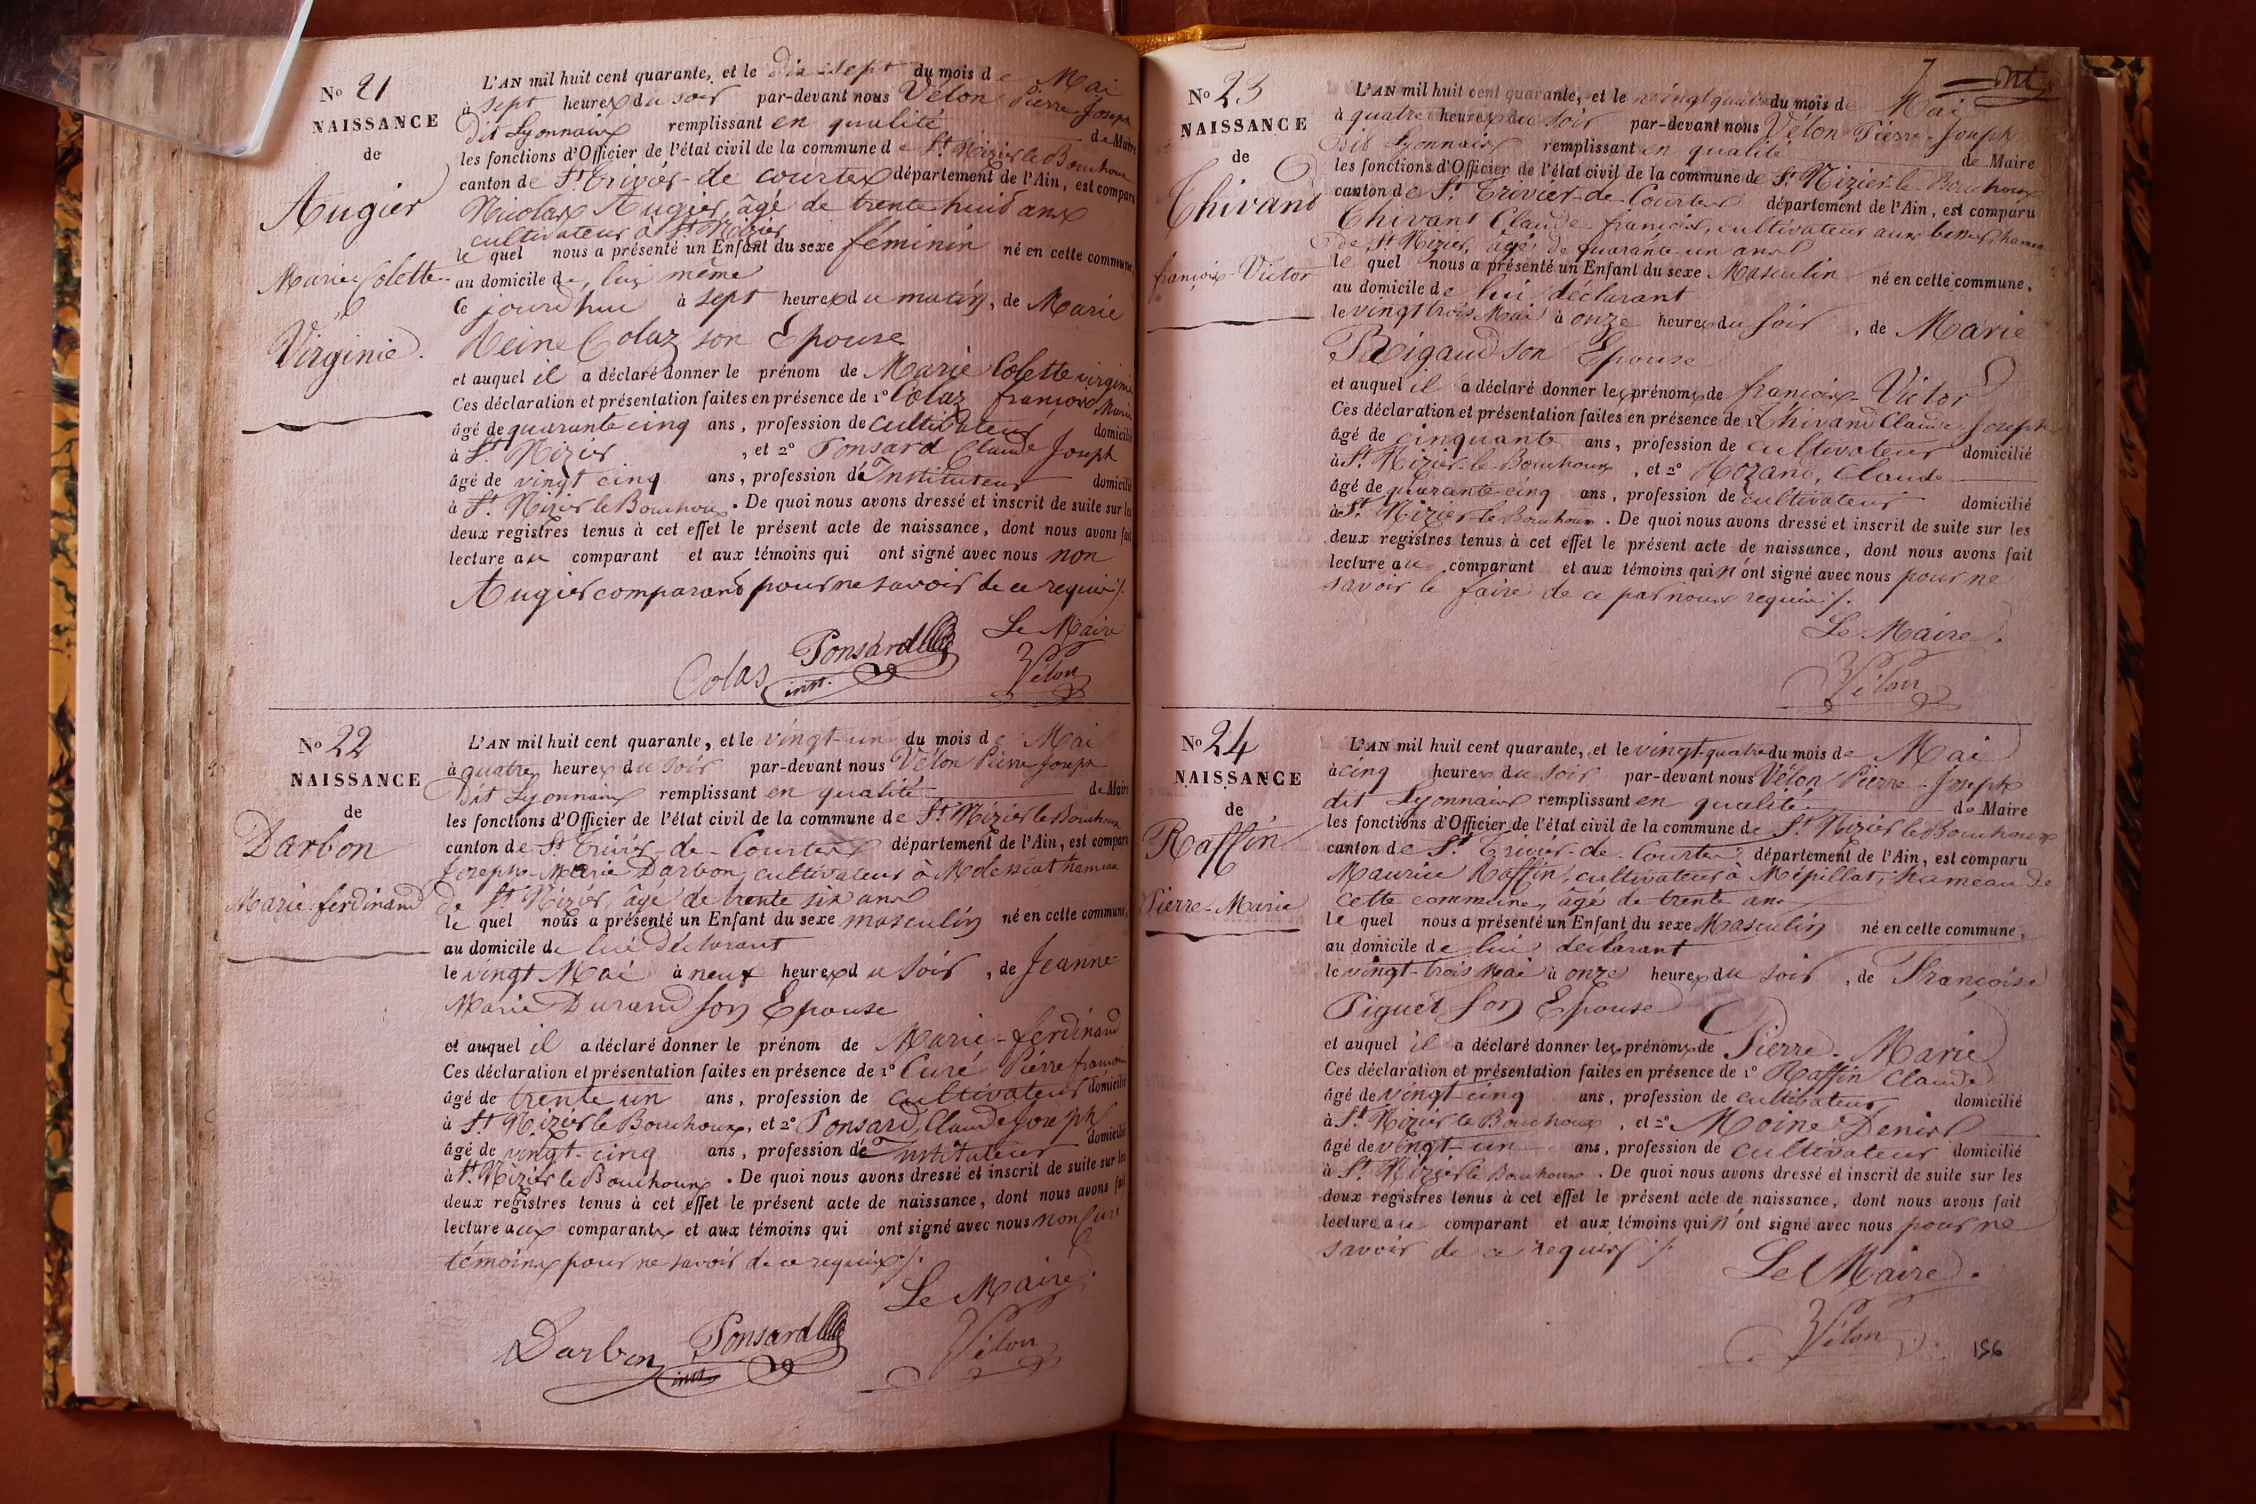 No 21
NAISSANCE
de
Augier
Marie Colette
Virginie.
L'AN mil huit cent quarante, et le dix sept du mois de Mai
à sept heures du soir par-devant nous Vélon Pierre Joseph
dit Lyonnais remplissant en qualité de Maire
les fonctions d'Officier de l'état civil de la commune de St Nizier le Bouchoux
canton de St Trivier-de-courtes département de l'Ain, est comparu
Nicolas Augier, âgé de trente huit ans
cultivateur à St Nizier
le quel nous a présenté un Enfant du sexe féminin né en cette commune,
au domicile de lui même
ce jourd'hui à sept heures du matin, de Marie
Reine Colaz son Epouse
et auquel il a déclaré donner le prénom de Marie Colette virginie
Ces déclaration et présentation faites en présence de 1º Colaz françois Marie
âgé de quarante cinq ans, profession de cultivateur domicilié
à St Nizier, et 2º Ponsard Claude Joseph
âgé de vingt cinq ans, profession de Instituteur domicilié
à St Nizier le Bouchoux. De quoi nous avons dressé et inscrit de suite sur les
deux registres tenus à cet effet le présent acte de naissance, dont nous avons fait
lecture au comparant et aux témoins qui ont signé avec nous non
Augier comparant pour ne savoir de ce requis ./.
Le Maire
Colas Ponsard inst. Vélon
No 22
NAISSANCE
de
Darbon
Marie ferdinand
L'AN mil huit cent quarante, et le vingt-un du mois de Mai
à quatre heures du soir par-devant nous Vélon Pierre Joseph
Dit Lyonnais remplissant en qualité de Maire
les fonctions d'Officier de l'état civil de la commune de St Nizier le Bouchoux
canton de St Trivier-de-Courtes département de l'Ain, est comparu
Joseph-Marie Darbon, cultivateur à hameau
de St Nizier, âgé de trente six ans
le quel nous a présenté un Enfant du sexe masculin né en cette commune,
au domicile de lui déclarant
le vingt Mai à neuf heures du soir, de Jeanne
Marie Durand son Epouse
et auquel il a déclaré donner le prénom de Marie-ferdinand
Ces déclaration et présentation faites en présence de 1º Curé Pierre françois
âgé de trente un ans, profession de cultivateur domicilié
à St Nizier le Bouchoux, et 2º Ponsard, Claude Joseph
âgé de vingt-cinq ans, profession de Instituteur domicilié
à St Nizier le Bouchoux. De quoi nous avons dressé et inscrit de suite sur les
deux registres tenus à cet effet le présent acte de naissance, dont nous avons fait
lecture aux comparants et aux témoins qui ont signé avec nous non Curé
témoins pour ne savoir de ce requis ./.
Le Maire.
Darbon Ponsard inst Vélon
7
No 23
NAISSANCE
de
Thivand
françois-Victor
L'AN mil huit cent quarante, et le vingt quatre du mois de Mai
à quatre heures du soir par-devant nous Vélon Pierre-Joseph
Dit Lyonnais remplissant en qualité de Maire
les fonctions d'Officier de l'état civil de la commune de St Nizier le Bouchoux
canton de St Trivier-de-Courtes département de l'Ain, est comparu
Thivant Claude françois, cultivateur aux hameau
de St Nizier, âgé de quarante un ans
le quel nous a présenté un Enfant du sexe Masculin né en cette commune,
au domicile de lui déclarant
le vingt trois Mai à onze heures du soir, de Marie
Rigaud son Epouse
et auquel il a déclaré donner les prénoms de françois-Victor
Ces déclaration et présentation faites en présence de 1º Thivand Claude Joseph
âgé de cinquante ans, profession de cultivateur domicilié
à St Nizier-le-Bouchoux, et 2º Rozand, Claude
âgé de quarante-cinq ans, profession de cultivateur domicilié
à St Nizier-le-Bouchoux. De quoi nous avons dressé et inscrit de suite sur les
deux registres tenus à cet effet le présent acte de naissance, dont nous avons fait
lecture au comparant et aux témoins qui n'ont signé avec nous pour ne
savoir le faire de ce par nous requis ./.
Le Maire.
Vélon
No 24
NAISSANCE
de
Raffin
Pierre-Marie
L'AN mil huit cent quarante, et le vingt-quatre du mois de Mai
à cinq heures du soir par-devant nous Vélon Pierre-Joseph
dit Lyonnais remplissant en qualité de Maire
les fonctions d'Officier de l'état civil de la commune de St Nizier le Bouchoux
canton de St Trivier-de-Courtes département de l'Ain, est comparu
Maurice Raffin, cultivateur à Mépillat, hameau de
cette commune, âgé de trente ans
le quel nous a présenté un Enfant du sexe Masculin né en cette commune,
au domicile de lui déclarant
le vingt-trois Mai à onze heures du soir, de Françoise
Piguet son Epouse
et auquel il a déclaré donner les prénoms de Pierre-Marie
Ces déclaration et présentation faites en présence de 1º Raffin Claude
âgé de vingt-cinq ans, profession de cultivateur domicilié
à St Nizier le Bouchoux, et 2º Moine Denis
âgé de vingt-un ans, profession de cultivateur domicilié
à St Nizier le Bouchoux. De quoi nous avons dressé et inscrit de suite sur les
deux registres tenus à cet effet le présent acte de naissance, dont nous avons fait
lecture au comparant et aux témoins qui n'ont signé avec nous pour ne
savoir de ce requis ./.
Le Maire.
Vélon
156